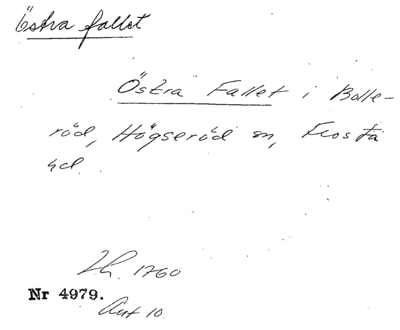 Östra fallet
Östra Fallet i Bolle-
röd, Högseröd sn, Frosta
hd.
Lh. 1760
Nr 4979.
Akt 10.